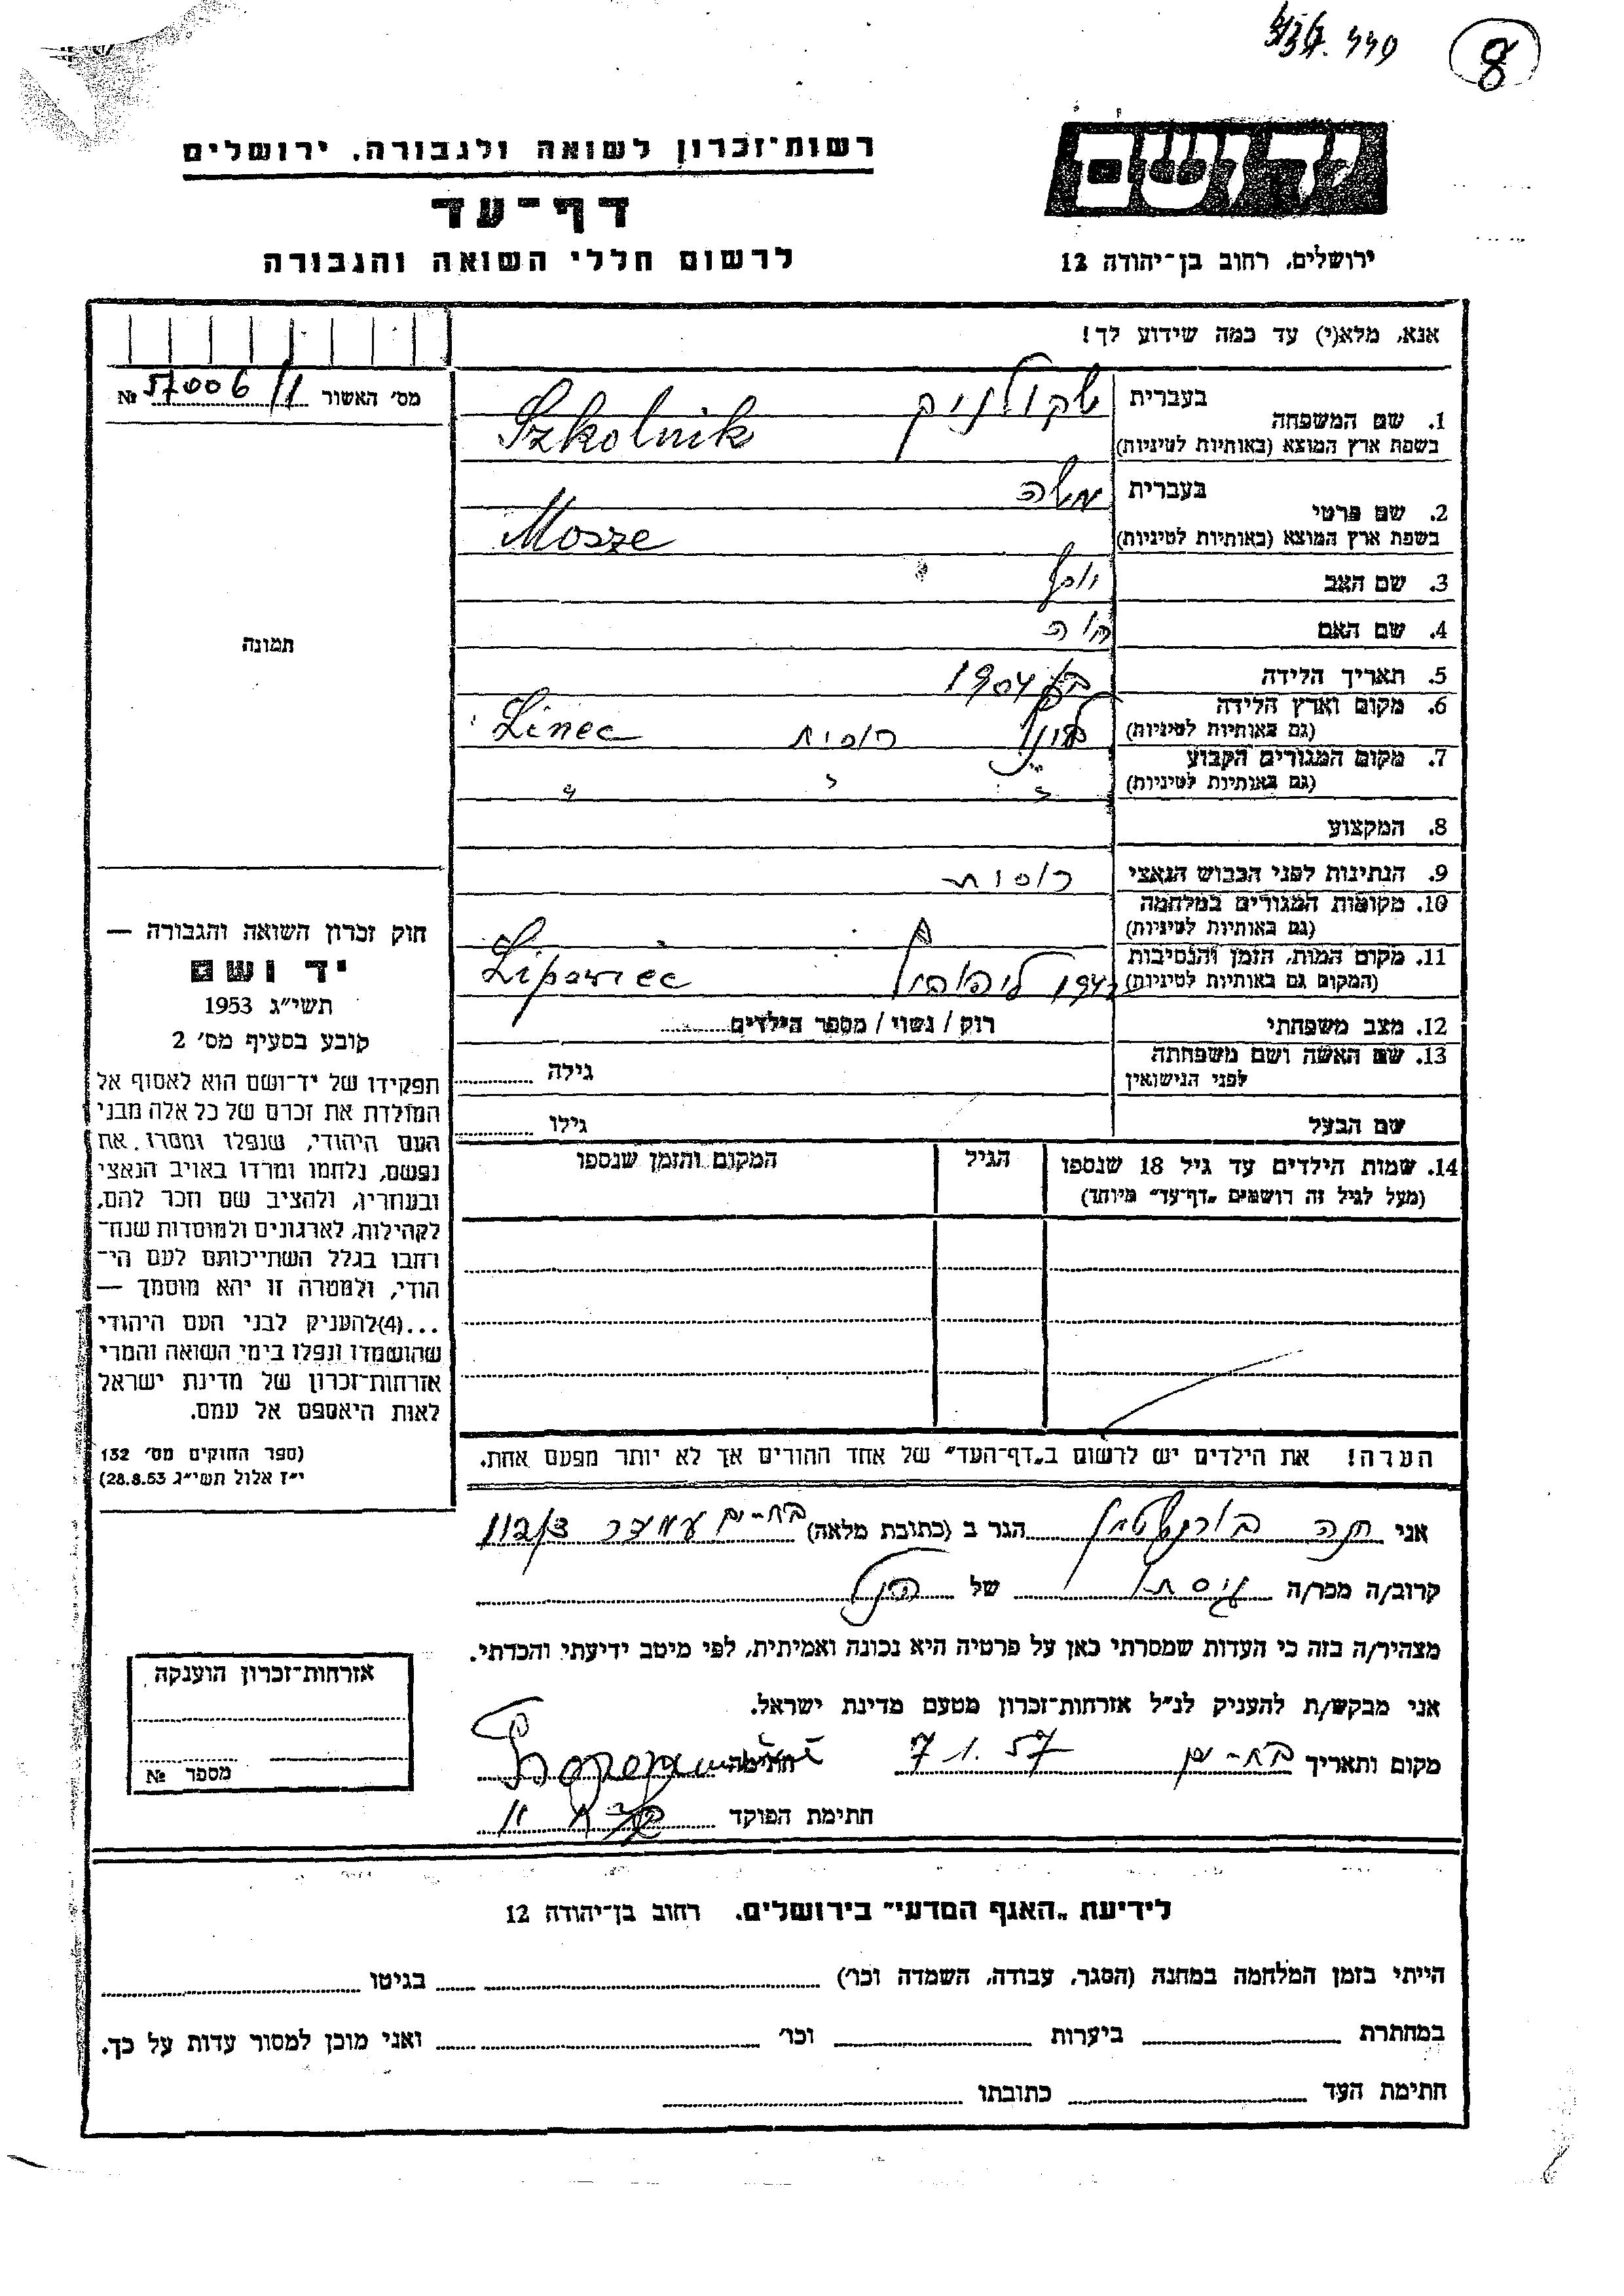 8
רשות-זכרון לשואה ולגבורה, ירושלים
יד ושם
דף-עד
לרשום חללי השואה והגבורה
ירושלים, רחוב בן-יהודה 12
אנא, מלא(י) עד כמה שידוע לך!
מס' האשור 57006/1 №
1. שם המשפחה
בעברית שקולניק
בשפת ארץ המוצא (באותיות לטיניות) Szkolnik
2. שם פרטי
בעברית משה
בשפת ארץ המוצא (באותיות לטיניות) Mosze
3. שם האב
4. שם האם חיה
5. תאריך הלידה 1904
6. מקום וארץ הלידה
(גם באותיות לטיניות) רוסיה Linec
7. מקום המגורים הקבוע
(גם באותיות לטיניות) " " "
8. המקצוע
9. הנתינות לפני הכבוש הנאצי רוסית
10. מקומות המגורים במלחמה
(גם באותיות לטיניות)
11. מקום המות, הזמן והנסיבות
(המקום גם באותיות לטיניות) Lipowiec
12. מצב משפחתי רוק / נשוי / מספר הילדים
13. שם האשה ושם משפחתה
לפני הנישואין גילה
שם הבעל גילו
14. שמות הילדים עד גיל 18 שנספו
(מעל לגיל זה רושמים „דף-עד" מיוחד)
הגיל
המקום והזמן שנספו
הערה! את הילדים יש לרשום ב„דף-העד" של אחד ההורים אך לא יותר מפעם אחת.
תמונה
חוק זכרון השואה והגבורה —
יד ושם
תשי"ג 1953
קובע בסעיף מס' 2
תפקידו של יד-ושם הוא לאסוף אל
המולדת את זכרם של כל אלה מבני
העם היהודי, שנפלו ומסרו את
נפשם, נלחמו ומרדו באויב הנאצי
ובעוזריו, ולהציב שם וזכר להם,
לקהילות, לארגונים ולמוסדות שנח-
רבו בגלל השתייכותם לעם הי-
הודי, ולמטרה זו יהא מוסמך —
...(4)להעניק לבני העם היהודי
שהושמדו ונפלו בימי השואה והמרי
אזרחות-זכרון של מדינת ישראל
לאות היאספם אל עמם.
(ספר החוקים מס' 132
י"ז אלול תשי"ג 28.8.53)
אני חנה בורנשטיין הגר ב (כתובת מלאה) בת-ים עמידר 112/3
קרוב/ה מכר/ה גיסתו של הנ"ל
מצהיר/ה בזה כי העדות שמסרתי כאן על פרטיה היא נכונה ואמיתית, לפי מיטב ידיעתי והכרתי.
אני מבקש/ת להעניק לנ"ל אזרחות-זכרון מטעם מדינת ישראל.
מקום ותאריך בת-ים 7.1.57 חתימה
חתימת הפוקד
אזרחות-זכרון הוענקה
מספר №
לידיעת „האגף המדעי" בירושלים, רחוב בן-יהודה 12
הייתי בזמן המלחמה במחנה (הסגר, עבודה, השמדה וכו') בגיטו
במחתרת ביערות וכו' ואני מוכן למסור עדות על כך.
חתימת העד כתובתו